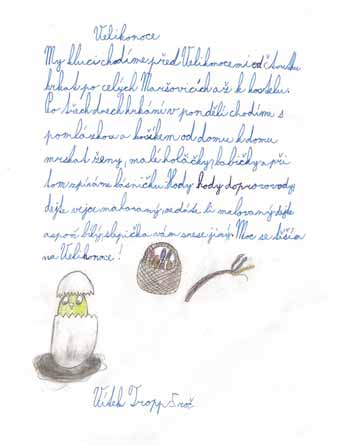 Velikonoce
My kluci chodíme před Velikonocemi od čtvrtku
hrkat po celých Maršovicích až k kostelu.
Po třech dnech hrkání v pondělí chodíme s
pomlázkou a košíkem od domu k domu
mrskat ženy, malé holčičky, babičky a při
tom zpíváme básničku Hody hody doprovody
dejte vejce malovaný nedáte li malovaný dejte
aspoň bílý slepička vám snese jiný. Moc se těším
na Velikonoce!
Vítek Tropp 5.roč